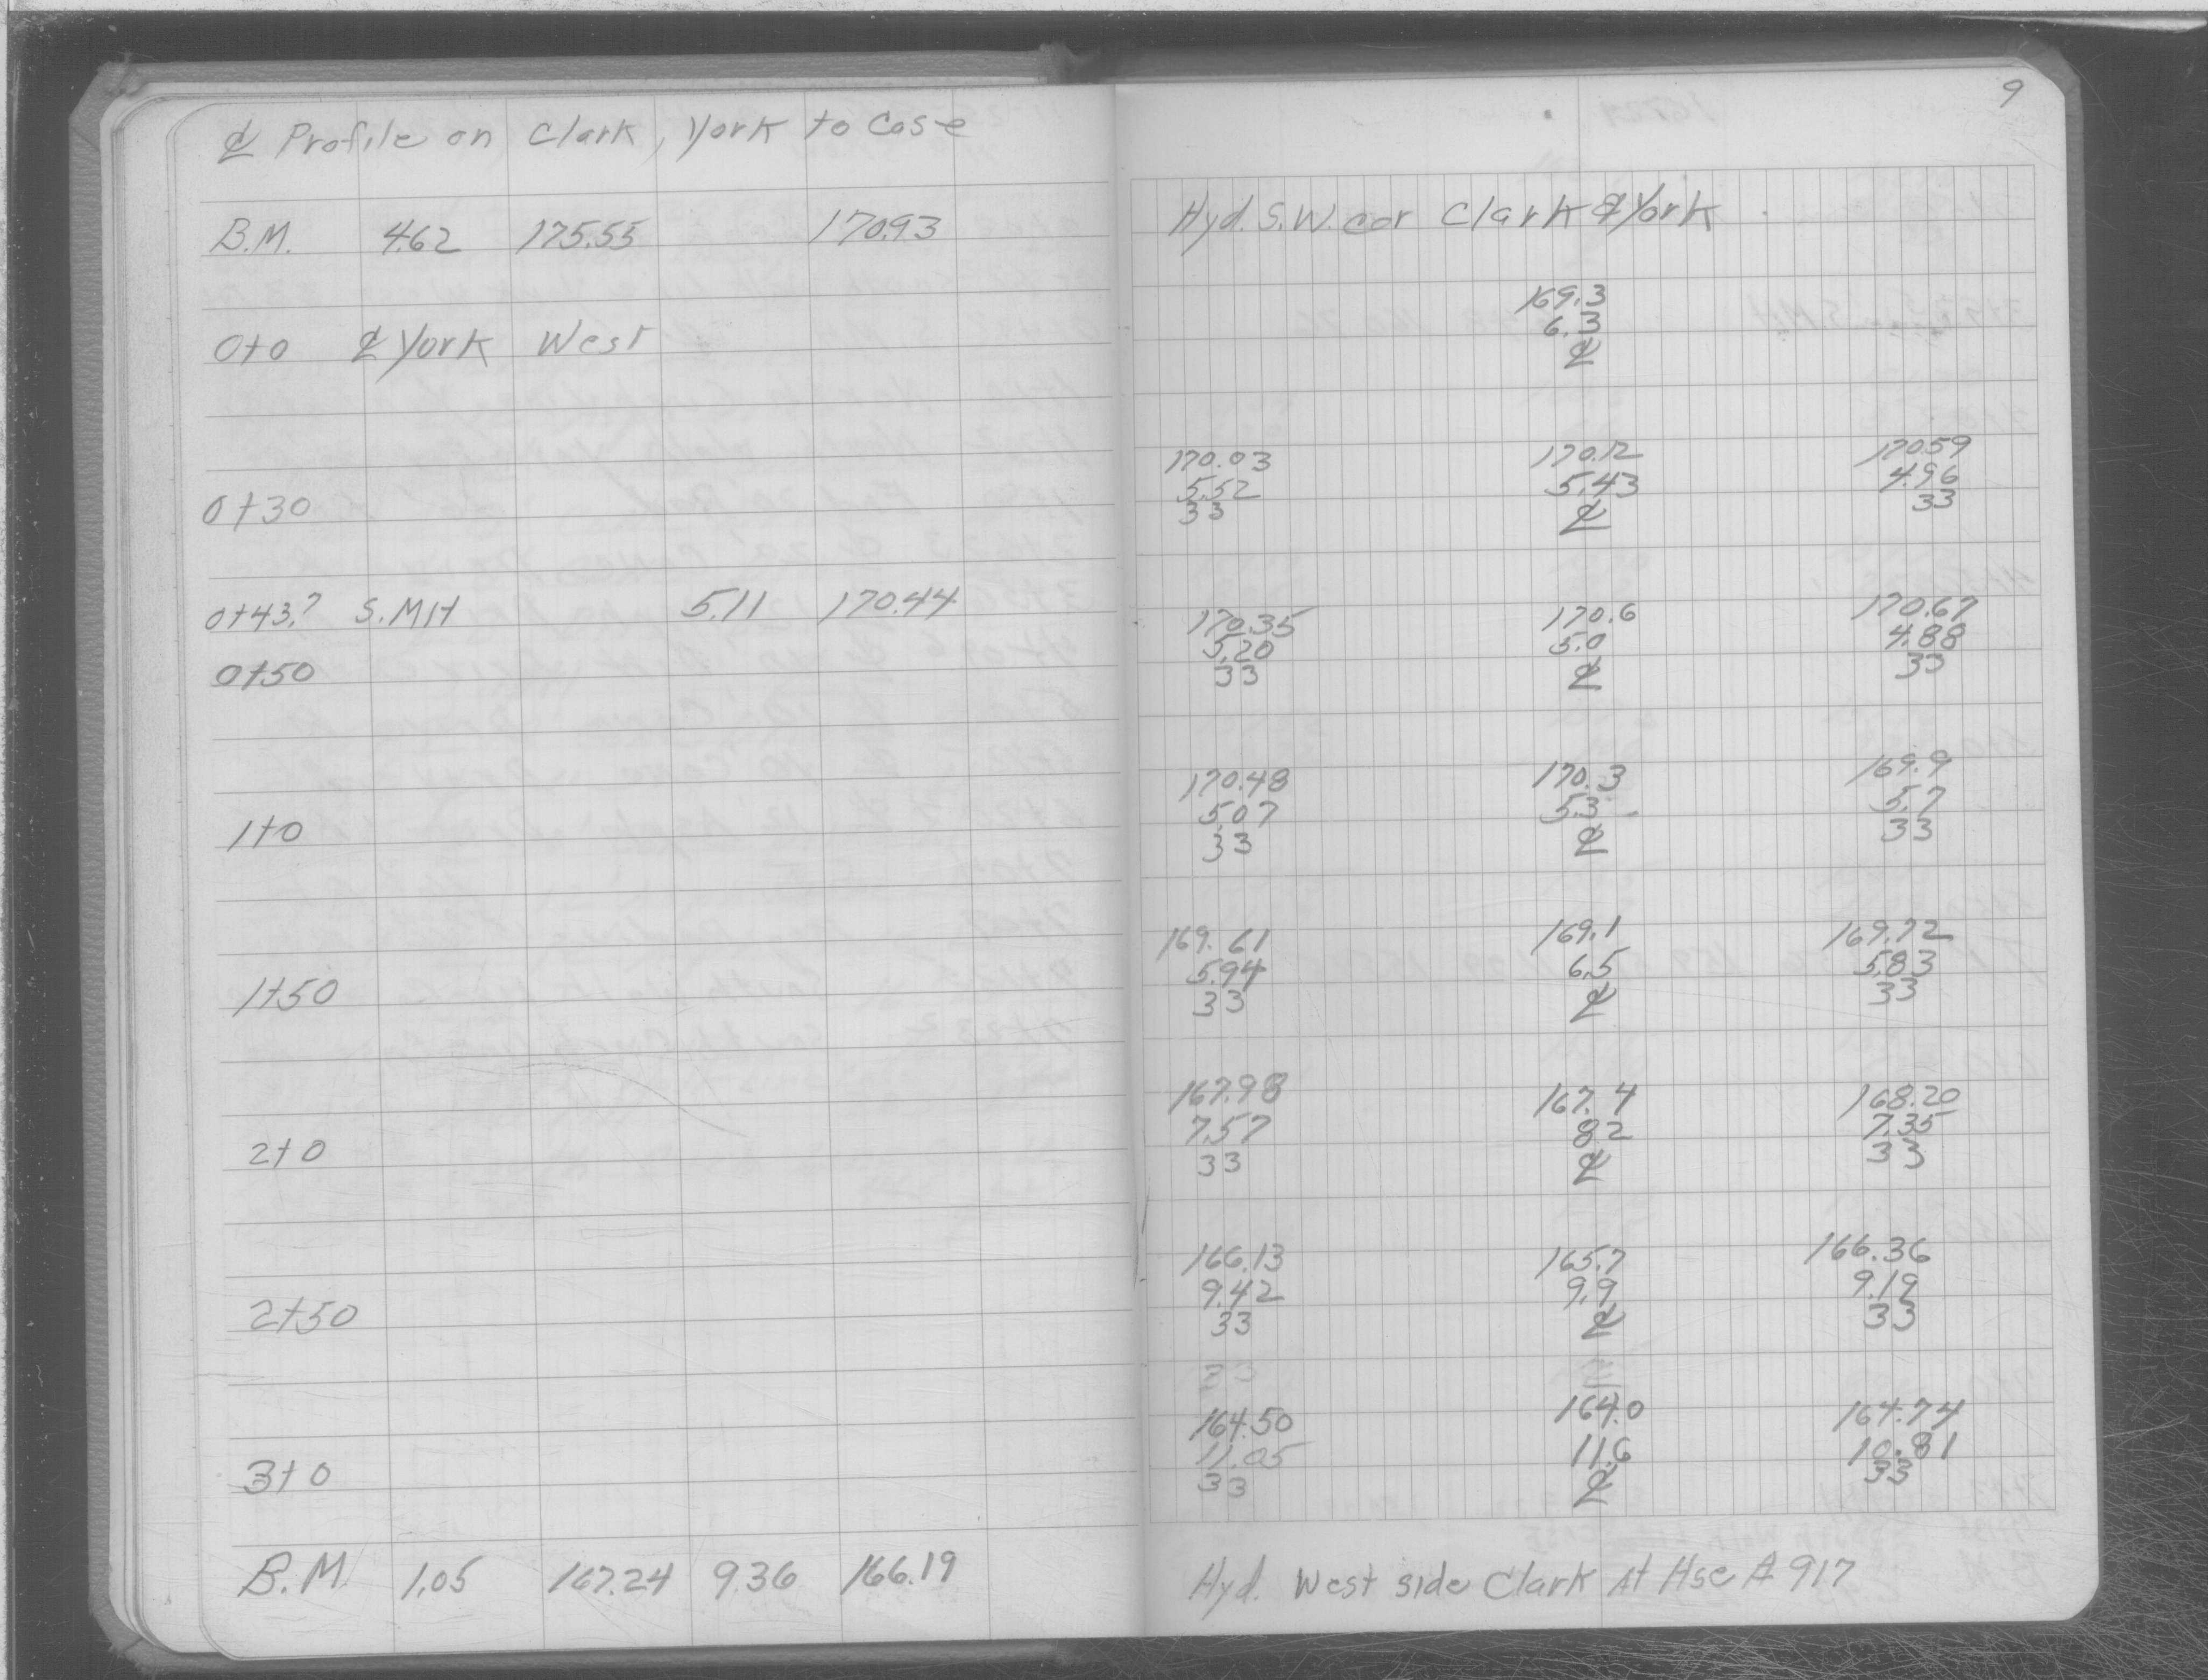 9
℄ Profile on Clark, York to Case
B.M. 4.62 175.55 170.93 Hyd. S.W. cor Clark & York
169.3
6.3
0+0 ℄ York West ℄
170.03 170.12 170.59
5.52 5.43 4.96
0+30 33 ℄ 33
0+43.7 S.MH 5.11 170.44
170.35 170.6 170.67
5.20 5.0 4.88
0+50 33 ℄ 33
170.48 170.3 169.9
5.07 5.3 5.7
1+0 33 ℄ 33
169.61 169.1 169.72
5.94 6.5 5.83
1+50 33 ℄ 33
167.98 167.4 168.20
7.57 8.2 7.35
2+0 33 ℄ 33
166.13 165.7 166.36
9.42 9.9 9.19
2+50 33 ℄ 33
164.50 164.0 164.74
11.05 11.6 10.81
3+0 33 ℄ 33
B.M. 1.05 167.24 9.36 166.19 Hyd. West side Clark At Hse # 917